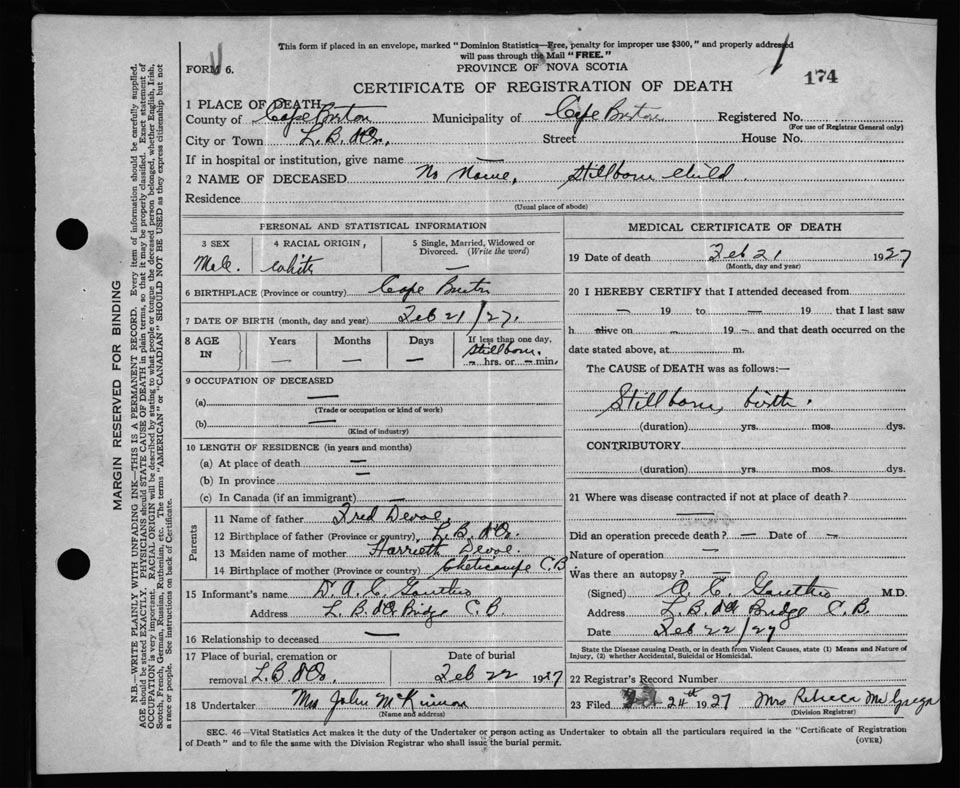 This form if placed in an envelope, marked "Dominion Statistics—Free, penalty for improper use $300," and properly addressed
will pass through the Mail "FREE."
FORM 6.
PROVINCE OF NOVA SCOTIA
174
CERTIFICATE OF REGISTRATION OF DEATH
1 PLACE OF DEATH
County of Cape Breton Municipality of Cape Breton Registered No.
(For use of Registrar General only)
City or Town L. B. d'Or. Street House No.
If in hospital or institution, give name —
2 NAME OF DECEASED No Name, Stillborn child
Residence
(Usual place of abode)
PERSONAL AND STATISTICAL INFORMATION
3 SEX 4 RACIAL ORIGIN, 5 Single, Married, Widowed or
Divorced. (Write the word)
Male. white —
6 BIRTHPLACE (Province or country) Cape Breton
7 DATE OF BIRTH (month, day and year) Feb 21/27.
8 AGE IN Years Months Days If less than one day,
Stillborn.
— — — — hrs. or — min.
9 OCCUPATION OF DECEASED
(a) —
(Trade or occupation or kind of work)
(b) —
(Kind of industry)
10 LENGTH OF RESIDENCE (in years and months)
(a) At place of death —
(b) In province —
(c) In Canada (if an immigrant) —
Parents
11 Name of father Fred Devoe.
12 Birthplace of father (Province or country), L. B. d'Or.
13 Maiden name of mother Harrieth Devoe.
14 Birthplace of mother (Province or country) Cheticampe C.B.
15 Informant's name Dr. A. C. Gouthro
Address L. B. d'Or Bridge C.B
16 Relationship to deceased —
17 Place of burial, cremation or Date of burial
removal L. B. d'Or Feb 22 1927
18 Undertaker Mrs John McKinnon
(Name and address)
MEDICAL CERTIFICATE OF DEATH
19 Date of death Feb 21 1927
(Month, day and year)
20 I HEREBY CERTIFY that I attended deceased from
— 19 to — 19 that I last saw
h alive on — 19 — and that death occurred on the
date stated above, at m.
The CAUSE of DEATH was as follows:—
Stillborn, birth.
(duration) yrs. mos. dys.
CONTRIBUTORY.
(duration) yrs. mos. dys.
21 Where was disease contracted if not at place of death?
—
Did an operation precede death? — Date of —
Nature of operation —
Was there an autopsy? —
(Signed) A. C. Gouthro M.D.
Address L. B. d'Or Bridge C.B.
Date Feb 22/27
State the Disease causing Death, or in death from Violent Causes, state (1) Means and Nature of
Injury, (2) whether Accidental, Suicidal or Homicidal.
22 Registrar's Record Number
23 Filed 24th 1927 Mrs Rebeca McGregor
(Division Registrar)
SEC. 46—Vital Statistics Act makes it the duty of the Undertaker or person acting as Undertaker to obtain all the particulars required in the "Certificate of Registration
of Death" and to file the same with the Division Registrar who shall issue the burial permit.
(OVER)
MARGIN RESERVED FOR BINDING
N.B.—WRITE PLAINLY WITH UNFADING INK—THIS IS A PERMANENT RECORD. Every item of information should be carefully supplied.
AGE should be stated EXACTLY. PHYSICIANS should STATE CAUSE OF DEATH in plain terms, so that it may be properly classified. Exact statement of
OCCUPATION is very important. RACIAL ORIGIN will be described by stating to what people or tongue the deceased person belonged, whether English, Irish,
Scotch, French, German, Russian, Ruthenian, etc. The terms "AMERICAN" or "CANADIAN" SHOULD NOT BE USED as they express citizenship but not
a race or people. See instructions on back of Certificate.